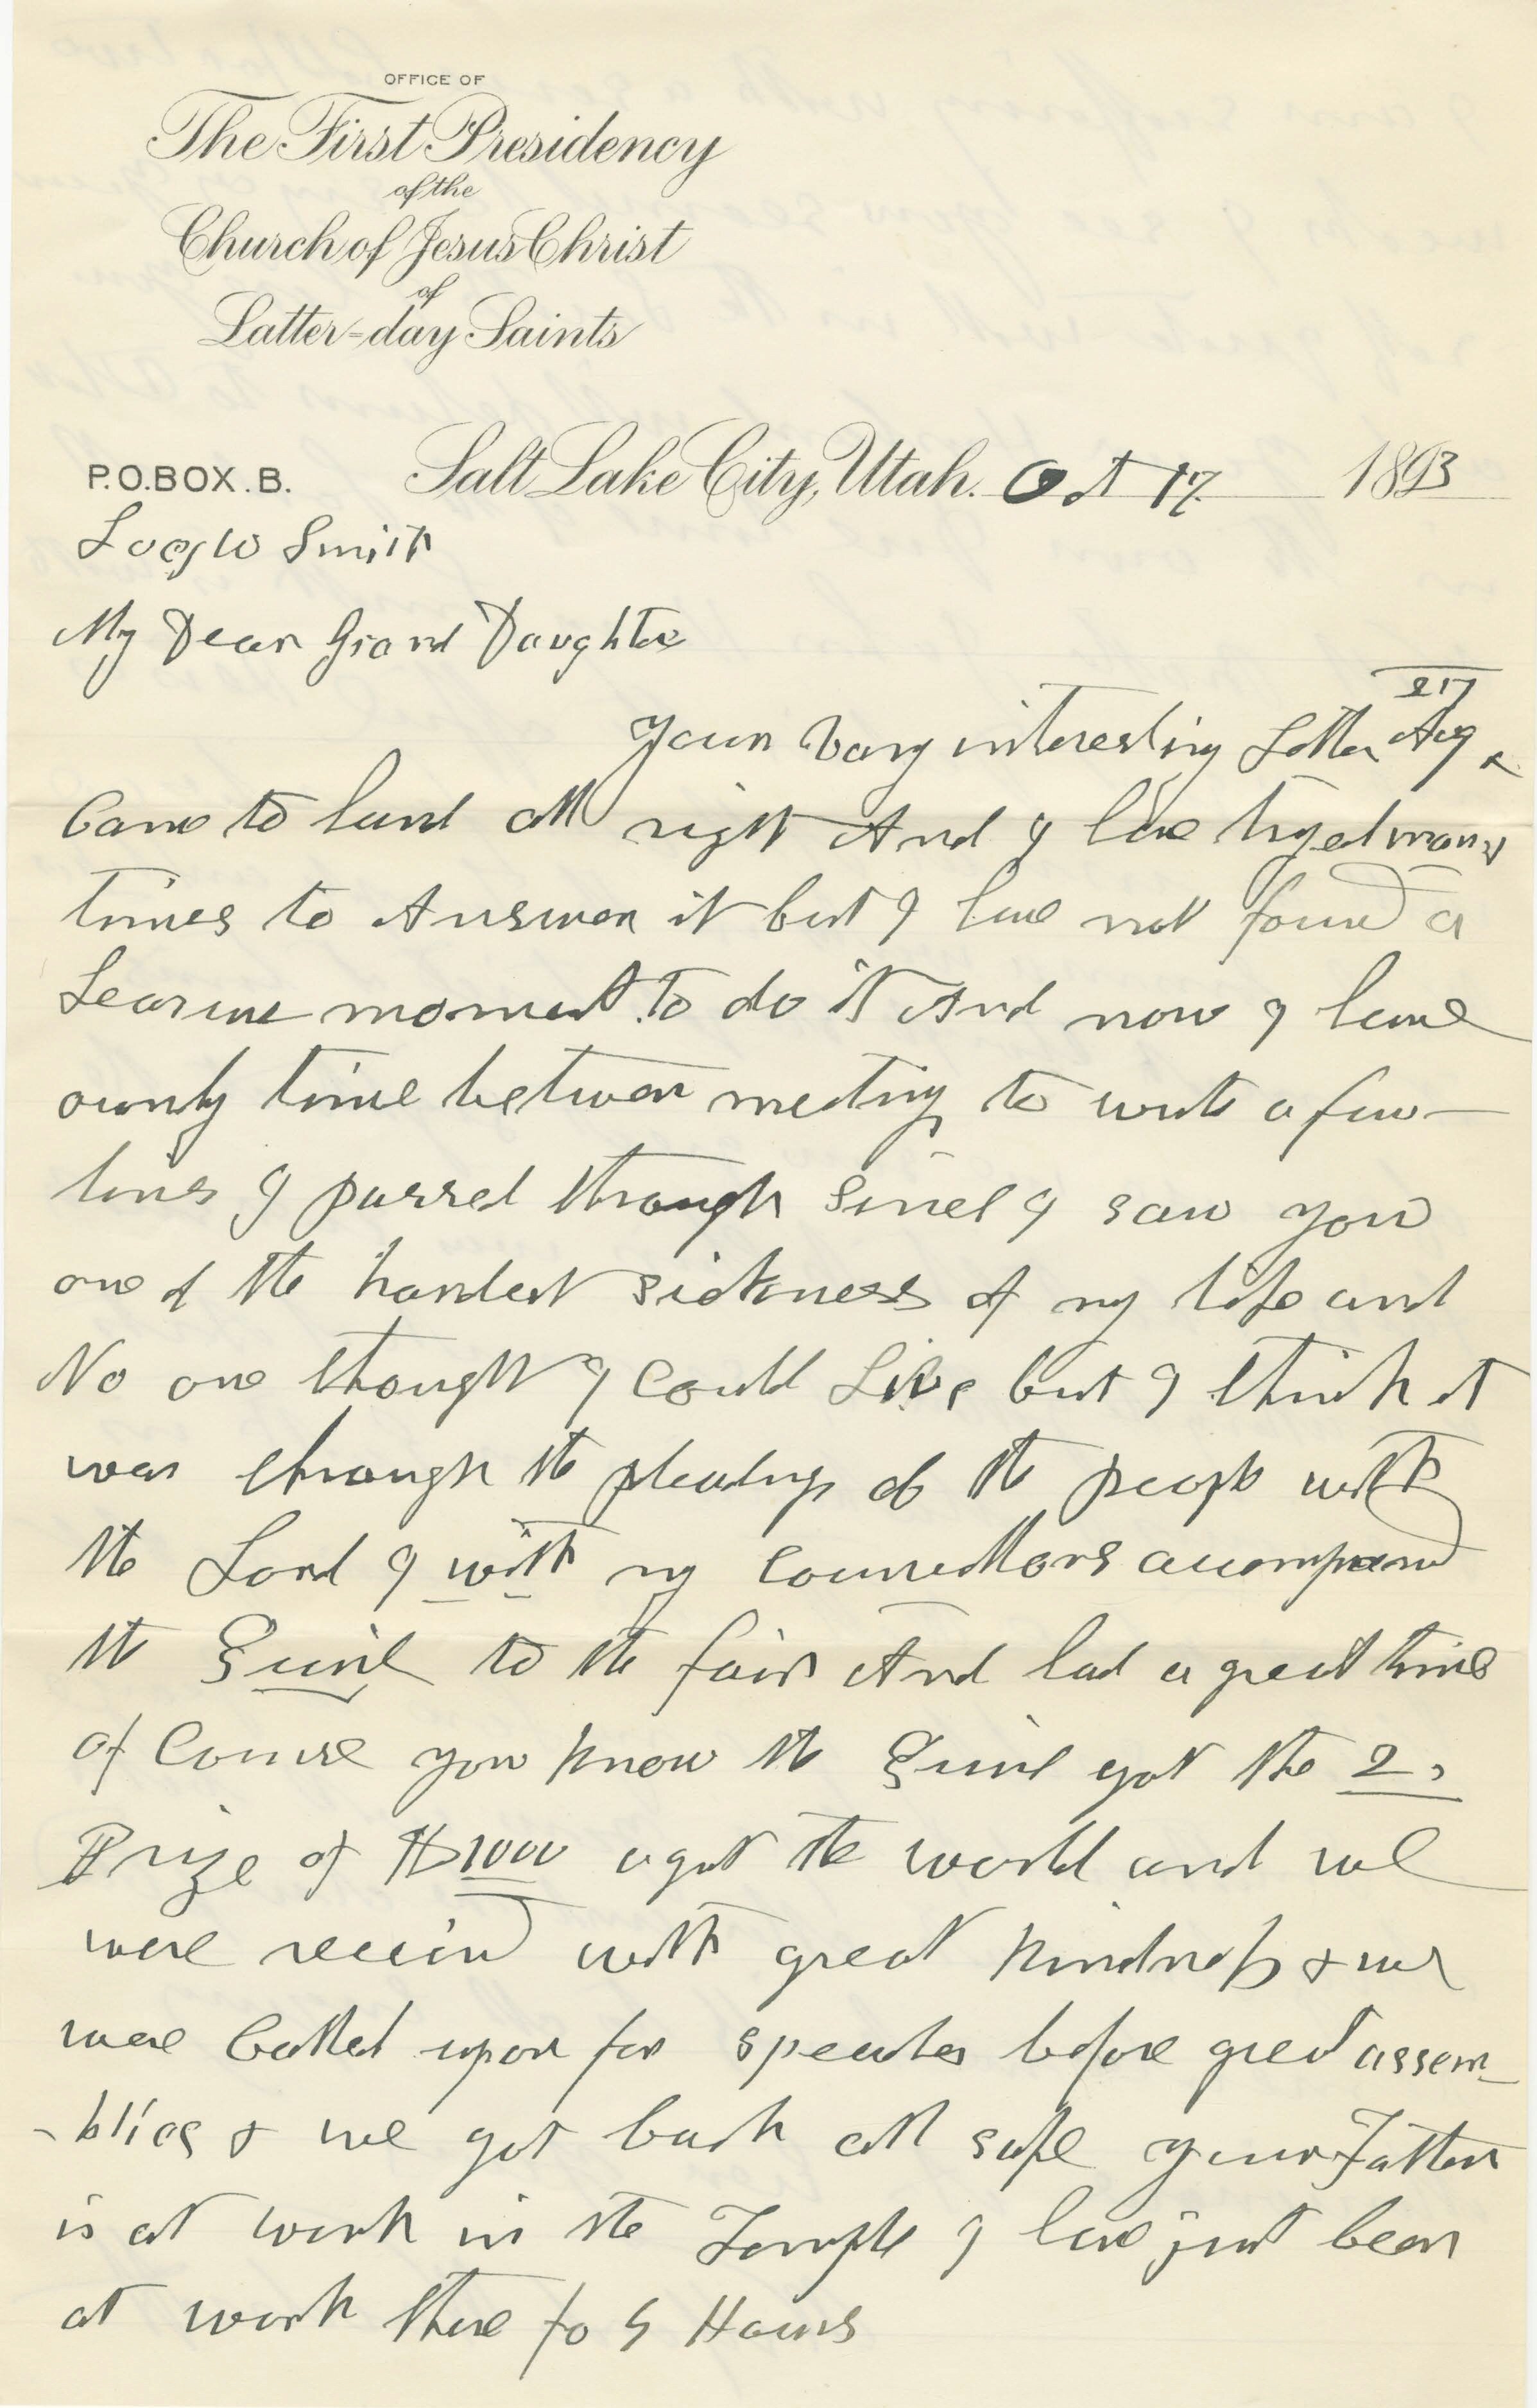 OFFICE OF
The First Presidency
of the
Church of Jesus Christ
of
Latter-day Saints
P.O.BOX.B. Salt Lake City, Utah. Oct 17 1893
Lucy W Smith
My Dear Grand Daughter
Your vary interesting Letter Aug
Came to hand all right And I have tryed many
times to Answer it but I have not found a
Leasure moment to do it And now I have
ownly time between meetings to write a few
lines I passed through since I saw you
one of the hardest sickness of my life and
No one thought I Could Live but I think it
was through the pleadings of the people with
the Lord I with my Councillors accompand
the Quire to the fair And had a great time
of Course you know the Quire got the 2,
Prize of $1000 agst the world and we
were receivd with great kindness & we
were Called upon for speeches before great assem-
-blies & we got back all safe your Father
is at work in the Temple I have just been
at work there for 5 Hours